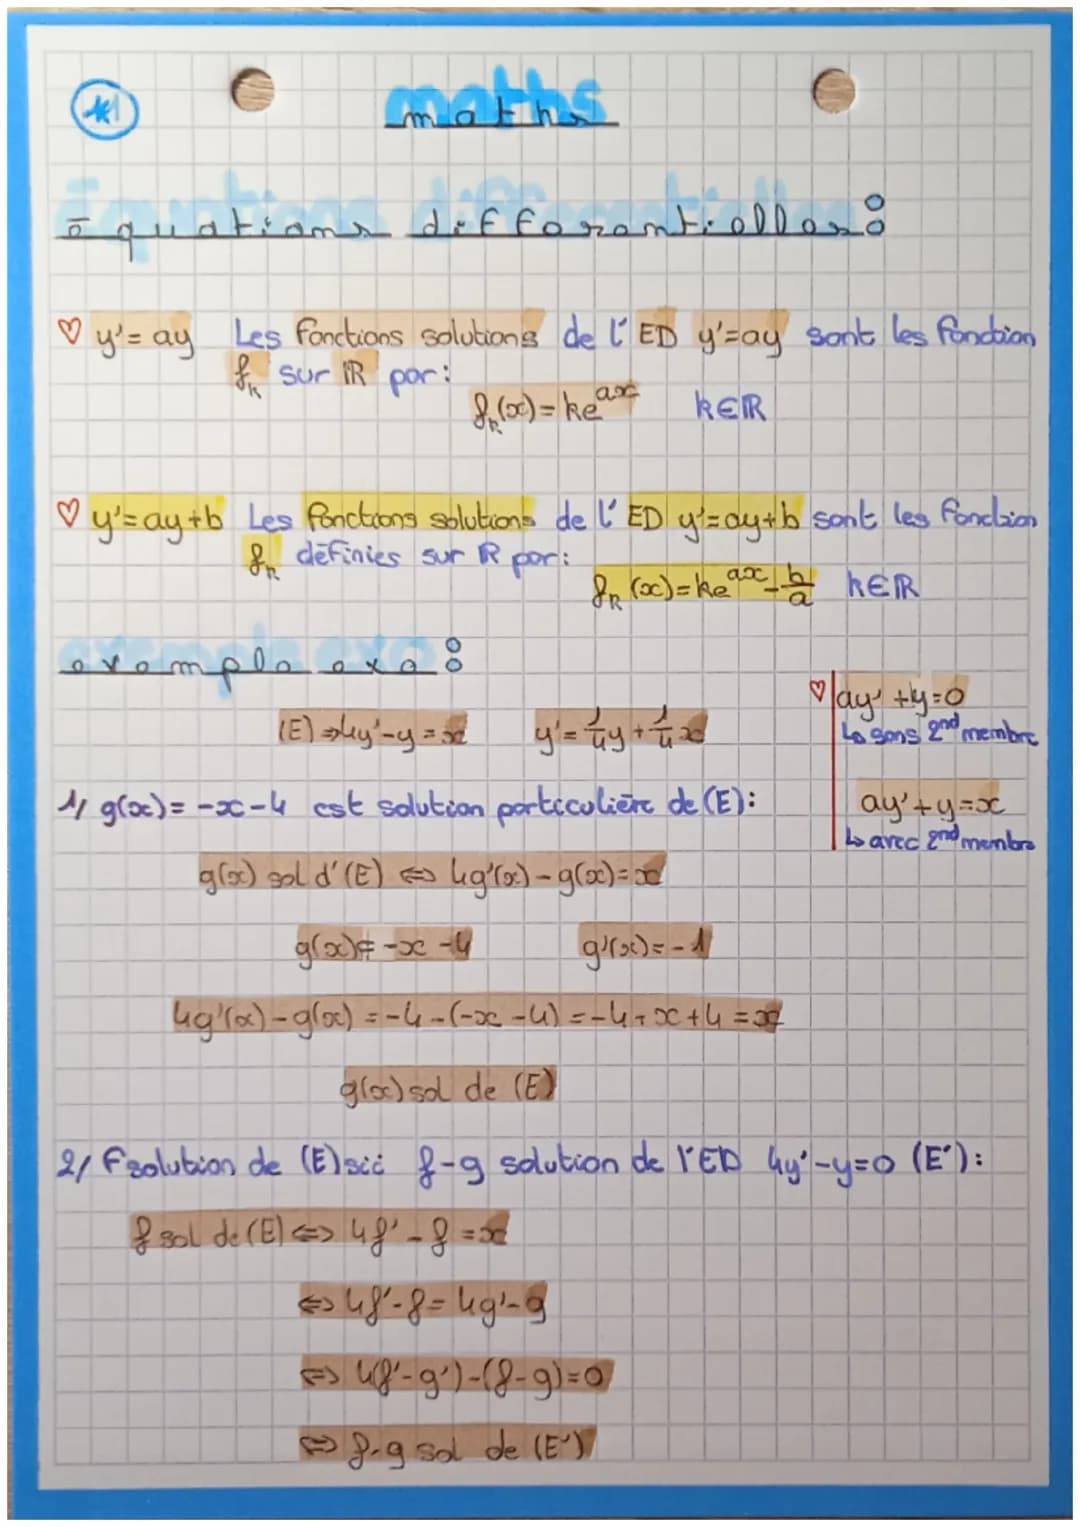 maths
équations différentielles :
y'= ay Les fonctions solutions de l'ED y'=ay sont les fonction
fk sur ℝ par :
fk(x) = ke^ax k∈ℝ
y'=ay+b Les fonctions solutions de l'ED y'=ay+b sont les fonction
fk définies sur ℝ par :
fk(x)=ke^ax - b/a k∈ℝ
exemple exo :
(E) ⇒ 4y'-y = x y'= 1/4 y + 1/4 x
ay' + y = 0
↳ sans 2nd membre
1/ g(x)= -x-4 est solution particulière de (E) :
ay' + y = x
↳ avec 2nd membre
g(x) sol d'(E) ⇔ 4g'(x) - g(x) = x
g(x) = -x -4 g'(x) = -1
4g'(x) - g(x) = -4 - (-x -4) = -4 + x + 4 = x
g(x) sol de (E)
2/ F solution de (E) sii f-g solution de l'ED 4y'-y=0 (E') :
f sol de (E) ⇔ 4f' - f = x
⇔ 4f'-f = 4g'-g
⇔ 4(f'-g')-(f-g)=0
⇔ f-g sol de (E')